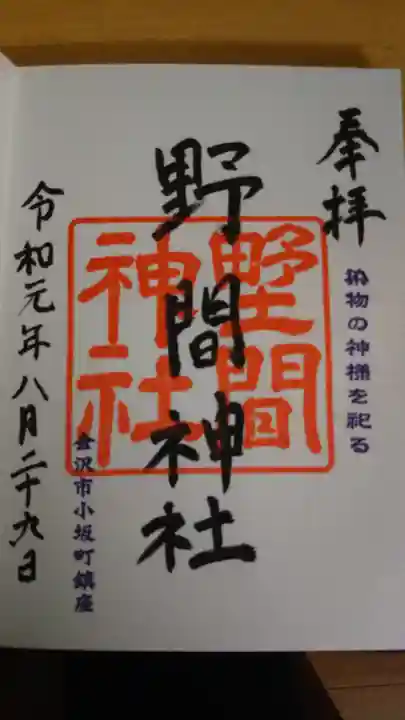 奉拝
の神様を祀る
野間神社
野間
神社
金沢市小坂町鎮座
令和元年八月二十九日